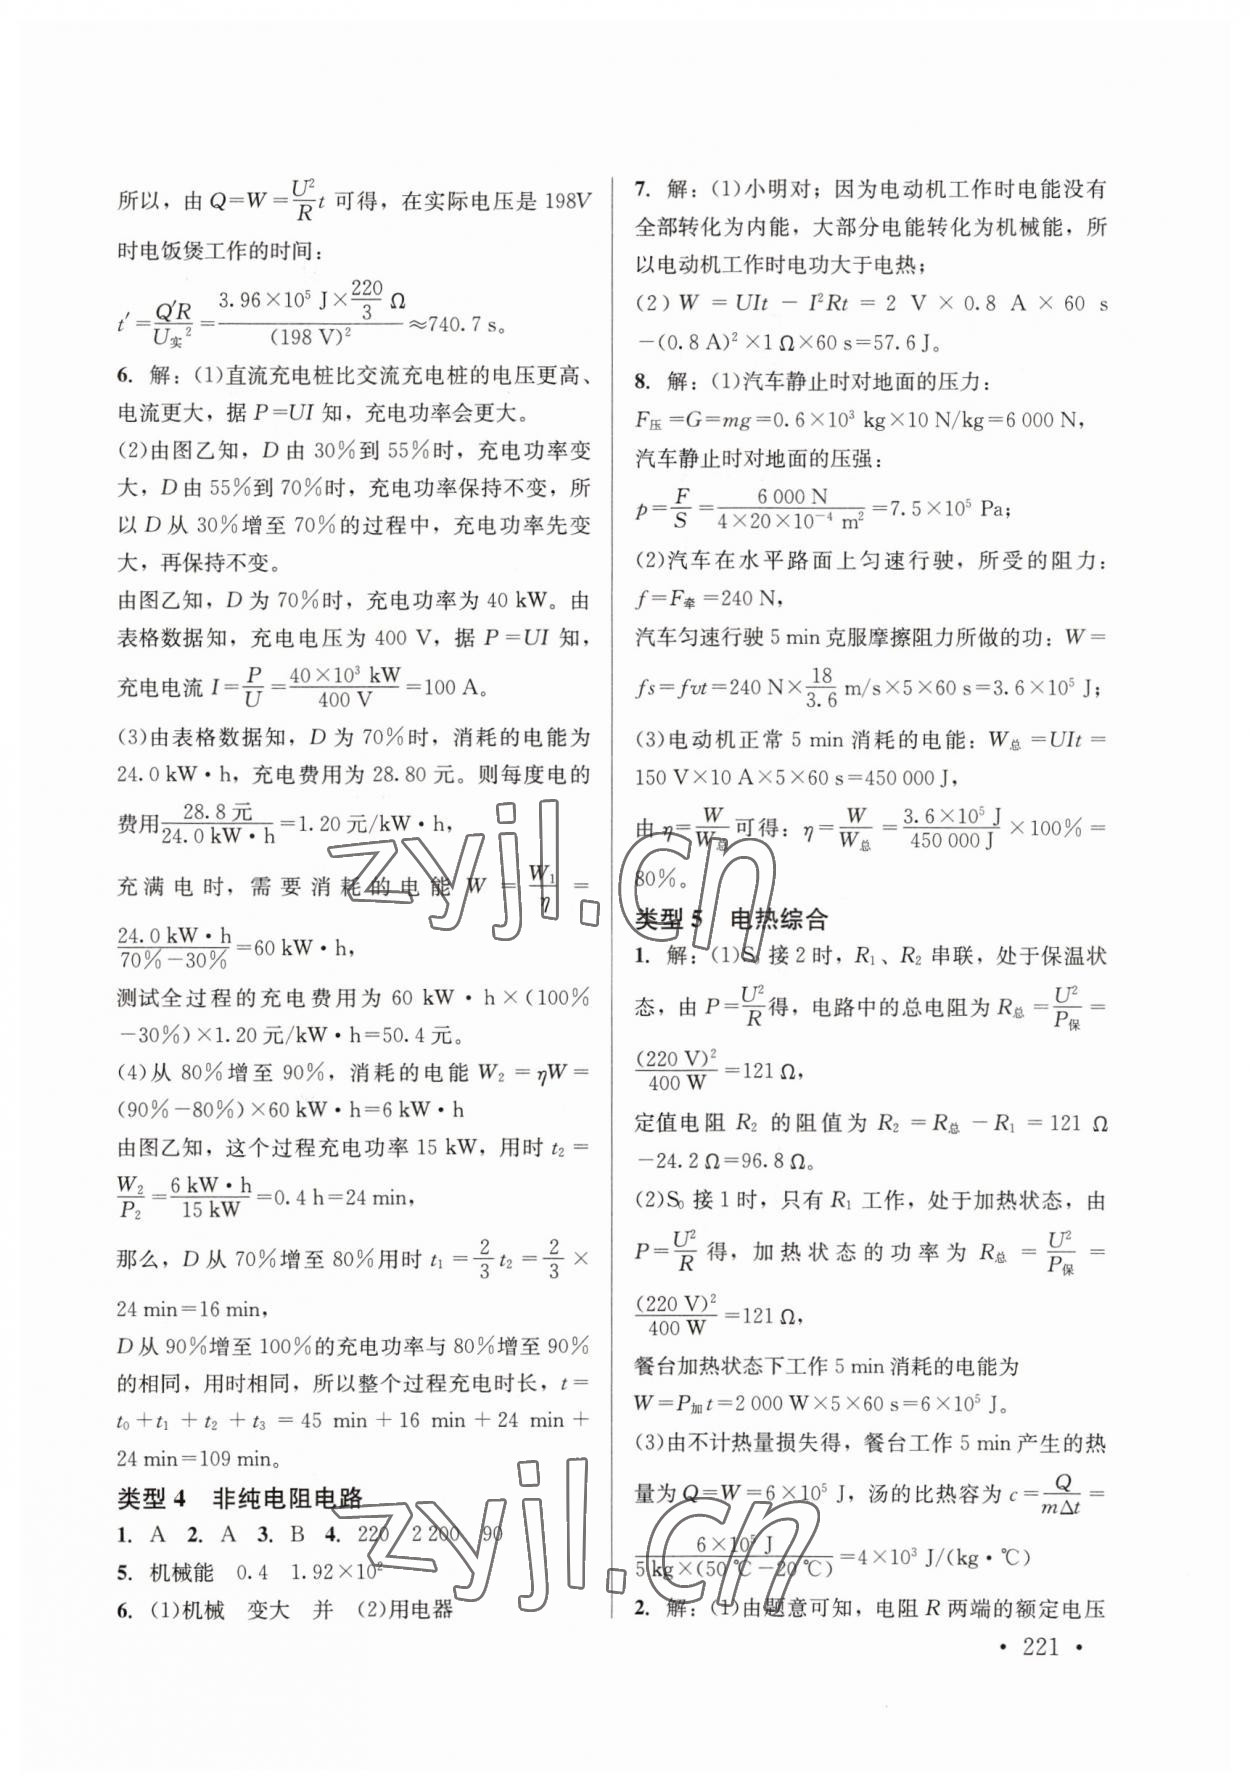 所以，由 Q=W=U²/R t 可得，在实际电压是 198V
时电饭煲工作的时间：
t′=Q′R/U实²=3.96×10⁵ J×220/3 Ω/(198 V)²≈740.7 s。
6. 解：(1)直流充电桩比交流充电桩的电压更高、
电流更大，据 P=UI 知，充电功率会更大。
(2)由图乙知，D 由 30%到 55%时，充电功率变
大，D 由 55%到 70%时，充电功率保持不变，所
以 D 从 30%增至 70%的过程中，充电功率先变
大，再保持不变。
由图乙知，D 为 70%时，充电功率为 40 kW。由
表格数据知，充电电压为 400 V，据 P=UI 知，
充电电流 I=P/U=40×10³ kW/400 V=100 A。
(3)由表格数据知，D 为 70%时，消耗的电能为
24.0 kW·h，充电费用为 28.80 元。则每度电的
费用28.8 元/24.0 kW·h=1.20 元/kW·h，
充满电时，需要消耗的电能 W=W₁/η=
24.0 kW·h/70%-30%=60 kW·h，
测试全过程的充电费用为 60 kW·h×(100%
-30%)×1.20 元/kW·h=50.4 元。
(4)从 80%增至 90%，消耗的电能 W₂=ηW=
(90%-80%)×60 kW·h=6 kW·h
由图乙知，这个过程充电功率 15 kW，用时 t₂=
W₂/P₂=6 kW·h/15 kW=0.4 h=24 min，
那么，D 从 70%增至 80%用时 t₁=2/3 t₂=2/3×
24 min=16 min，
D 从 90%增至 100%的充电功率与 80%增至 90%
的相同，用时相同，所以整个过程充电时长，t=
t₀+t₁+t₂+t₃=45 min+16 min+24 min+
24 min=109 min。
类型 4 非纯电阻电路
1. A 2. A 3. B 4. 220 2 200 90
5. 机械能 0.4 1.92×10²
6. (1)机械 变大 并 (2)用电器
7. 解：(1)小明对；因为电动机工作时电能没有
全部转化为内能，大部分电能转化为机械能，所
以电动机工作时电功大于电热；
(2) W=UIt-I²Rt=2 V×0.8 A×60 s
-(0.8 A)²×1 Ω×60 s=57.6 J。
8. 解：(1)汽车静止时对地面的压力：
F压=G=mg=0.6×10³ kg×10 N/kg=6 000 N，
汽车静止时对地面的压强：
p=F/S=6 000 N/4×20×10⁻⁴ m²=7.5×10⁵ Pa；
(2)汽车在水平路面上匀速行驶，所受的阻力：
f=F牵=240 N，
汽车匀速行驶 5 min 克服摩擦阻力所做的功：W=
fs=fvt=240 N×18/3.6 m/s×5×60 s=3.6×10⁵ J；
(3)电动机正常 5 min 消耗的电能：W总=UIt=
150 V×10 A×5×60 s=450 000 J，
由 η=W/W总可得：η=W/W总=3.6×10⁵ J/450 000 J×100%=
80%。
类型 5 电热综合
1. 解：(1)S₀ 接 2 时，R₁、R₂ 串联，处于保温状
态，由 P=U²/R得，电路中的总电阻为 R总=U²/P保=
(220 V)²/400 W=121 Ω，
定值电阻 R₂ 的阻值为 R₂=R总-R₁=121 Ω
-24.2 Ω=96.8 Ω。
(2)S₀ 接 1 时，只有 R₁ 工作，处于加热状态，由
P=U²/R 得，加热状态的功率为 R总=U²/P保=
(220 V)²/400 W=121 Ω，
餐台加热状态下工作 5 min 消耗的电能为
W=P加t=2 000 W×5×60 s=6×10⁵ J。
(3)由不计热量损失得，餐台工作 5 min 产生的热
量为 Q=W=6×10⁵ J，汤的比热容为 c=Q/mΔt=
6×10⁵ J/5 kg×(50 ℃-20 ℃)=4×10³ J/(kg·℃)
2. 解：(1)由题意可知，电阻 R 两端的额定电压
· 221 ·
zyjl.cn
zyjl.cn